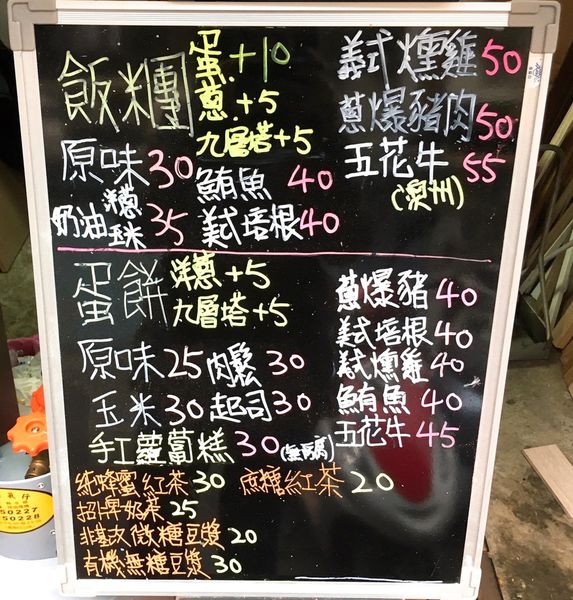 飯糰 蛋+10
蔥+5
九層塔+5
原味30
鮪魚 40
奶油洋蔥玉米 35
美式培根40
義式燻雞50
蔥爆豬肉50
五花牛 55
(澳州)
蛋餅 洋蔥+5
九層塔+5
原味25 肉鬆 30
玉米30 起司30
手工蘿蔔糕 30
蔥爆豬 40
美式培根 40
美式燻雞 40
鮪魚 40
五花牛 45
純蜂蜜紅茶 30 蔗糖紅茶 20
招牌奶茶 25
非基改微糖豆漿 20
有機無糖豆漿 30
50227
50228